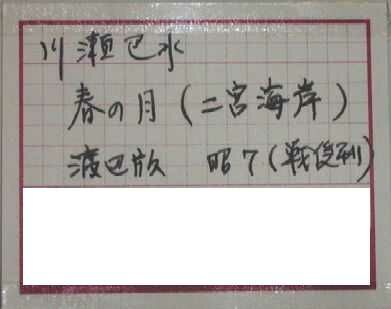 川瀬巴水
春の月(二宮海岸)
渡辺版 昭7(戦後刷)